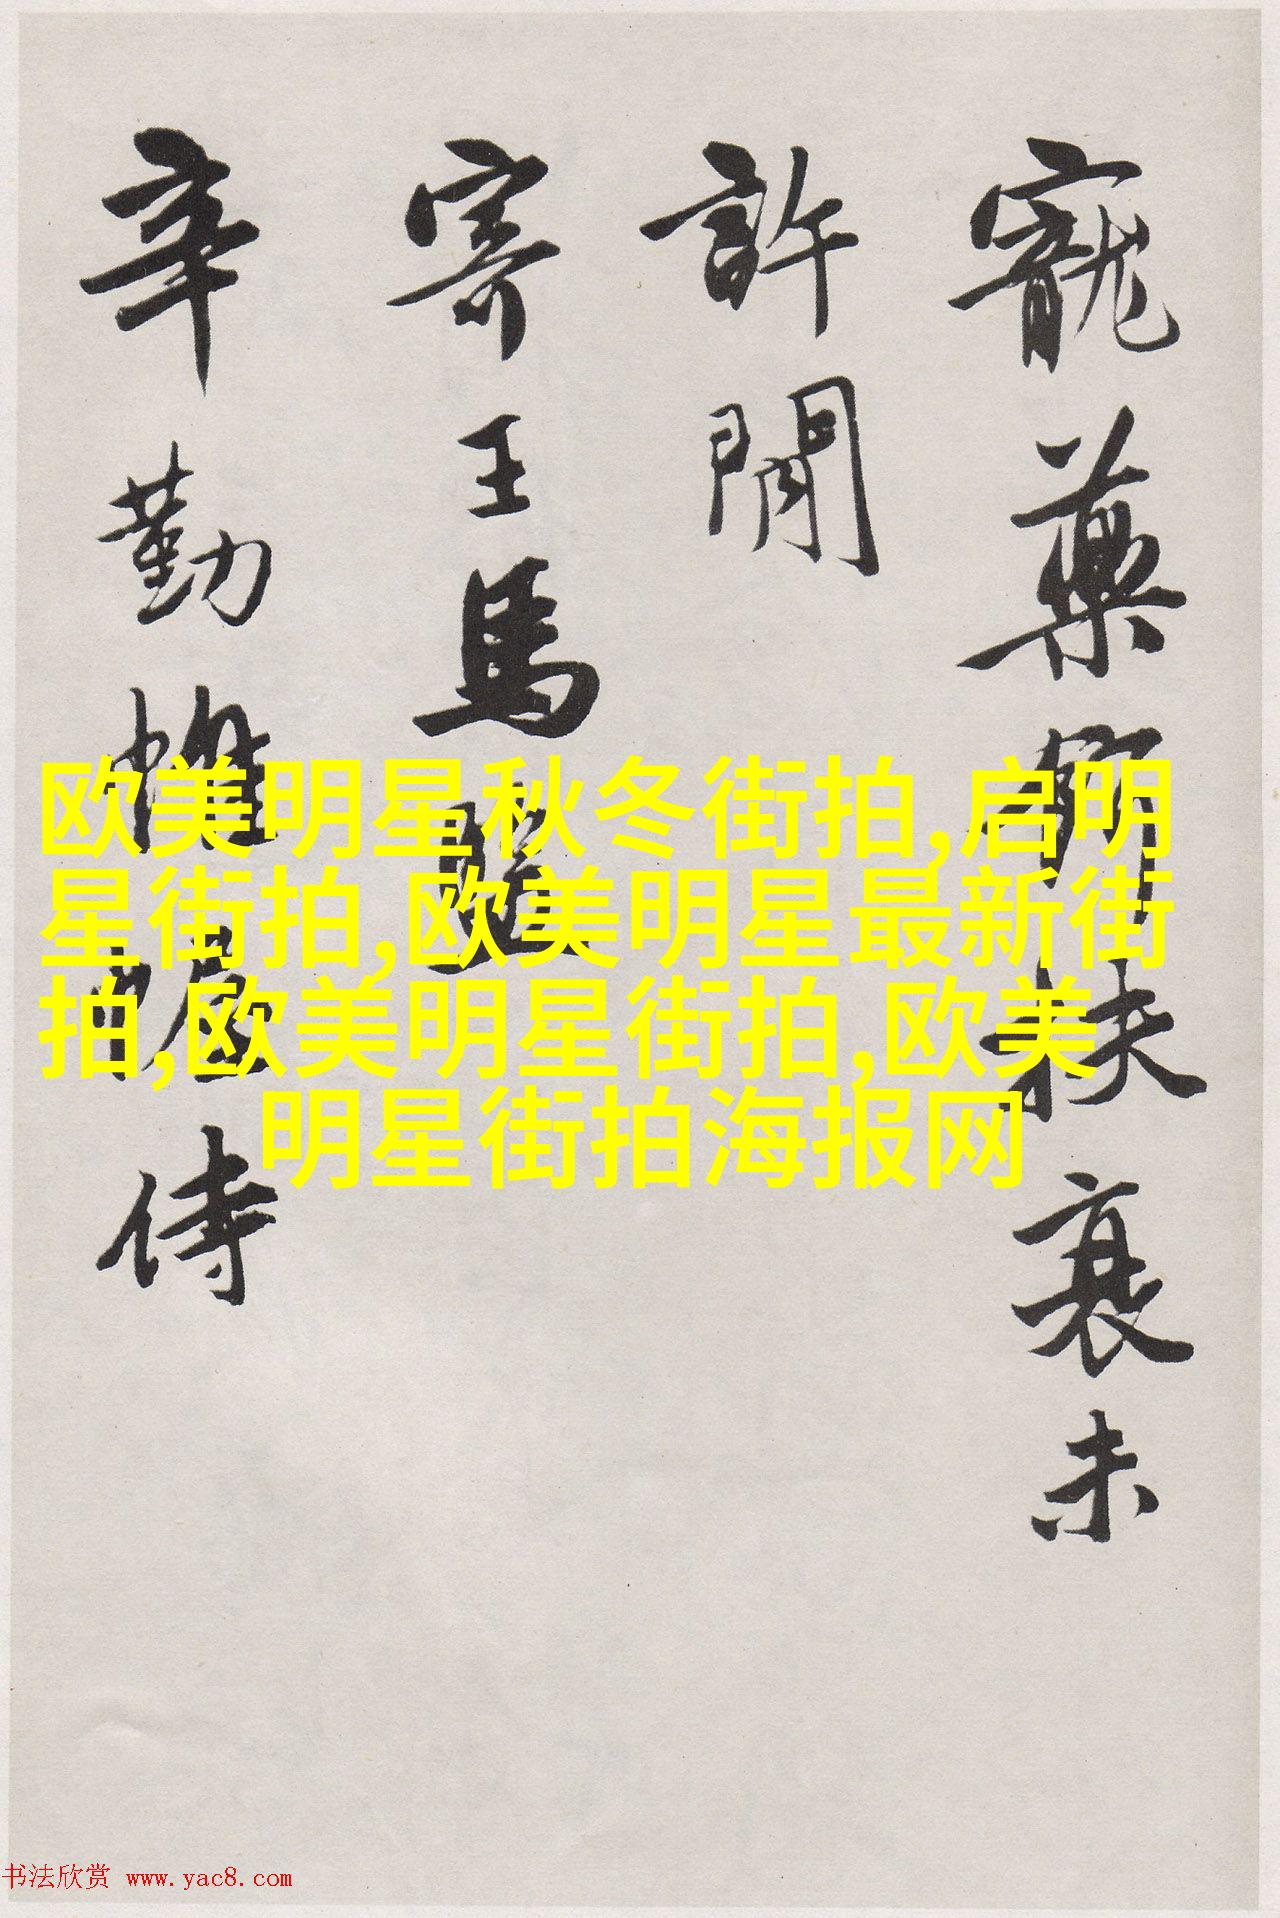 寵藥裹扶衰未
許閒
寄王馬
辛勤帷幄侍
欧美明星秋冬街拍,启明
星街拍,欧美明星最新街
拍,欧美明星街拍,欧美
明星街拍海报网
书法欣赏 www.yac8.com